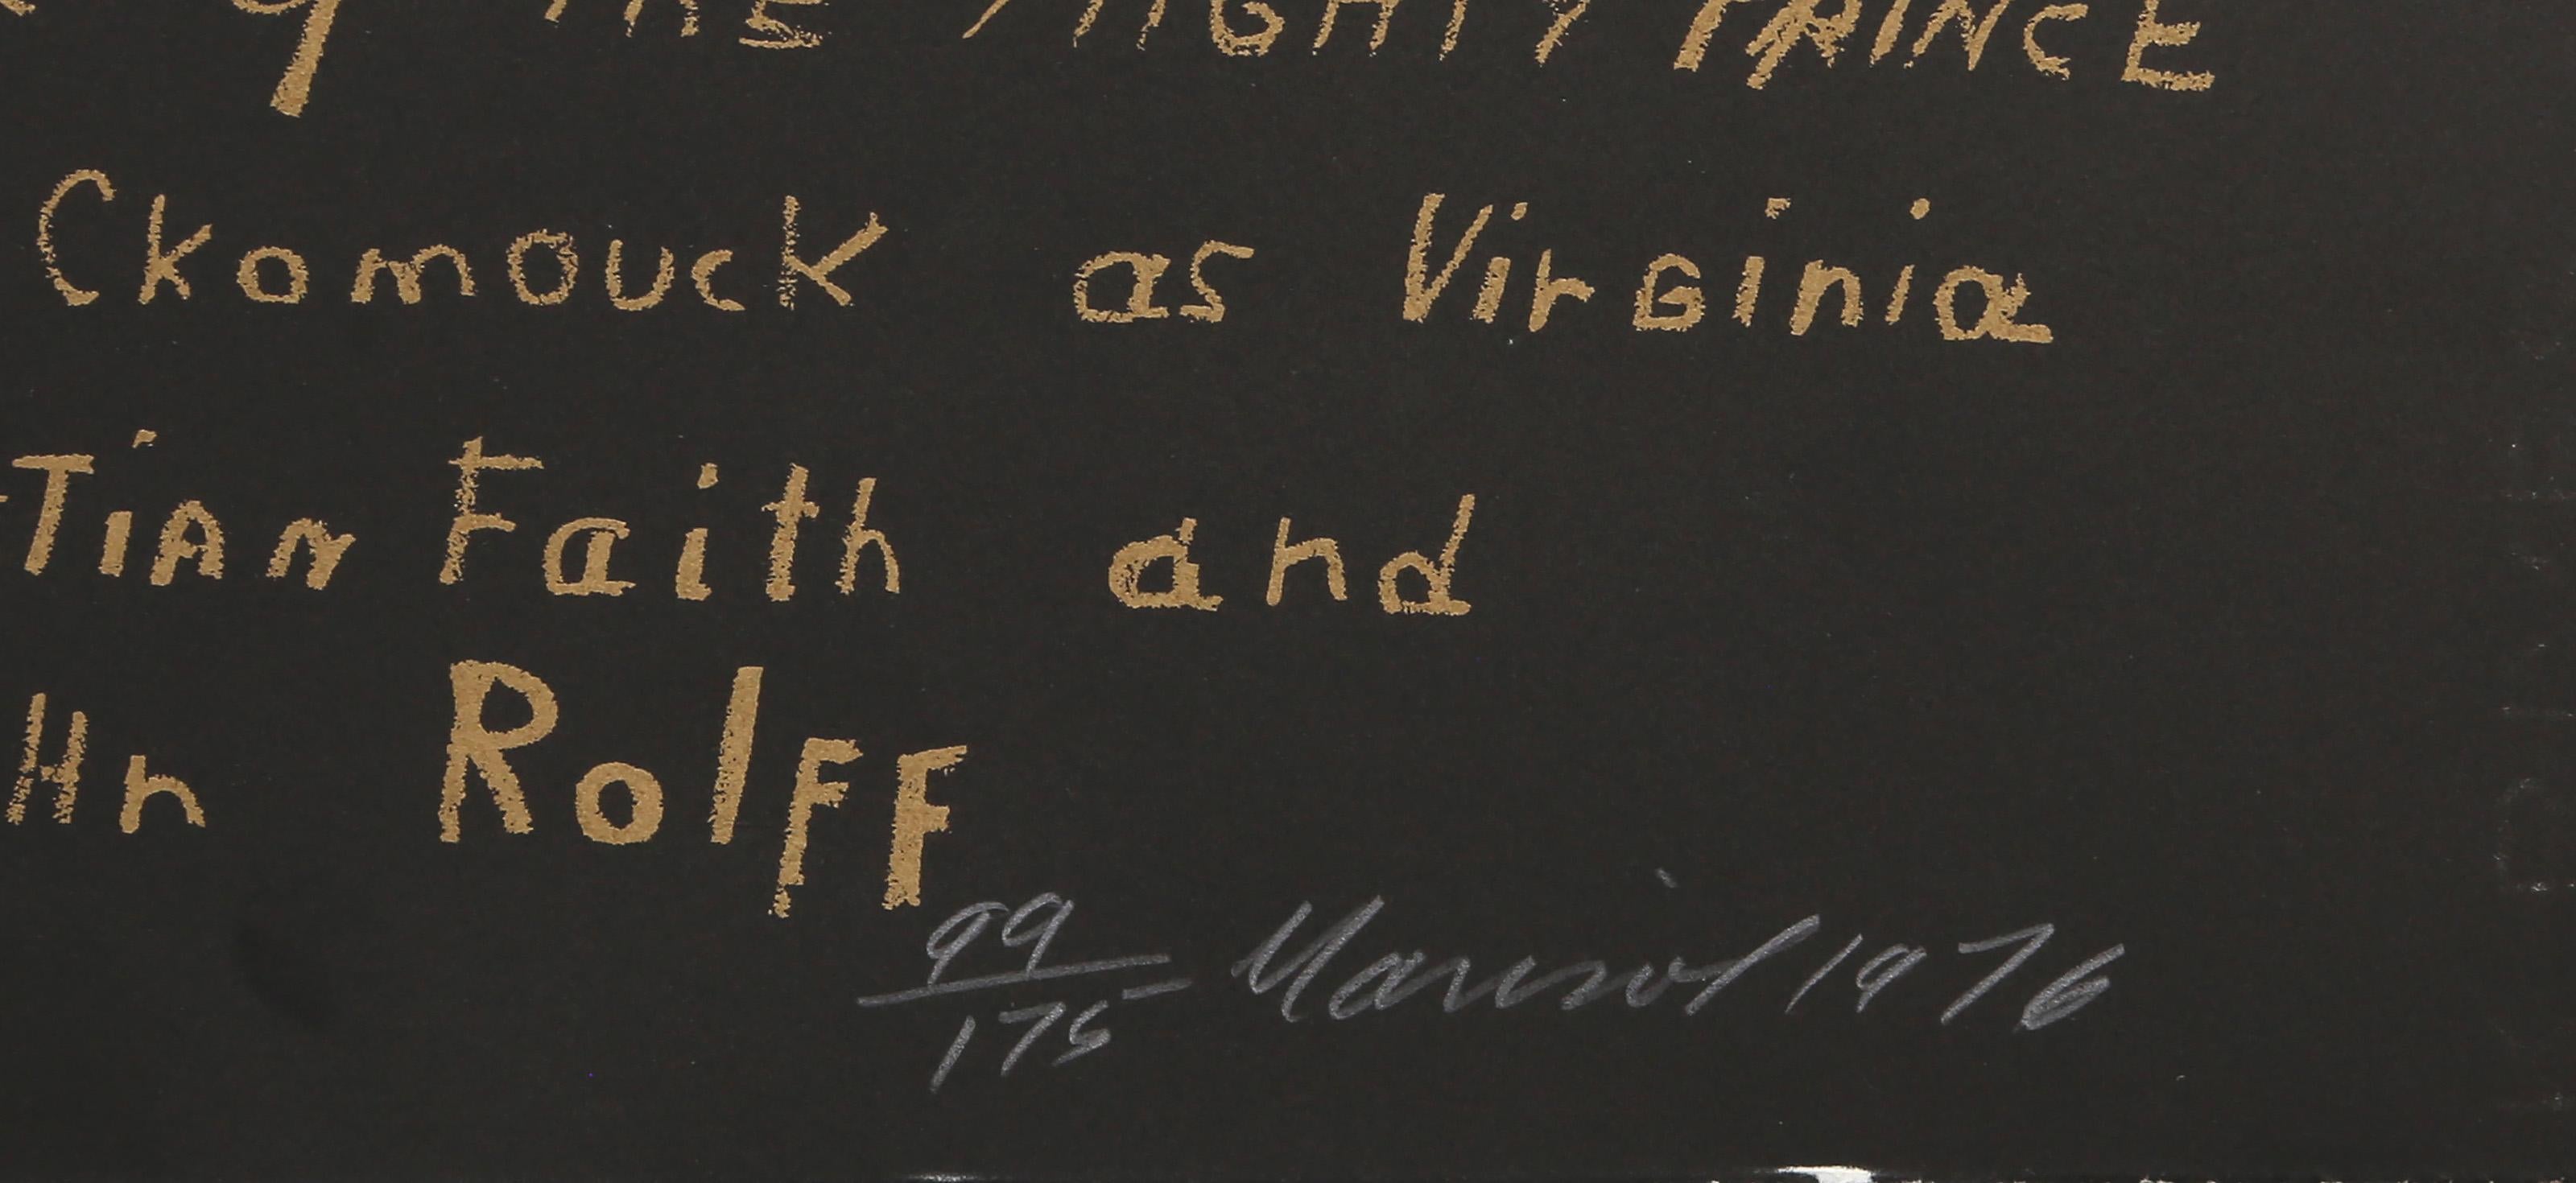 THE MIGHTY PRINCE
Ckomouck as Virginia
TiAN Faith and
Hn RolFF
99/175 Marisol 1976